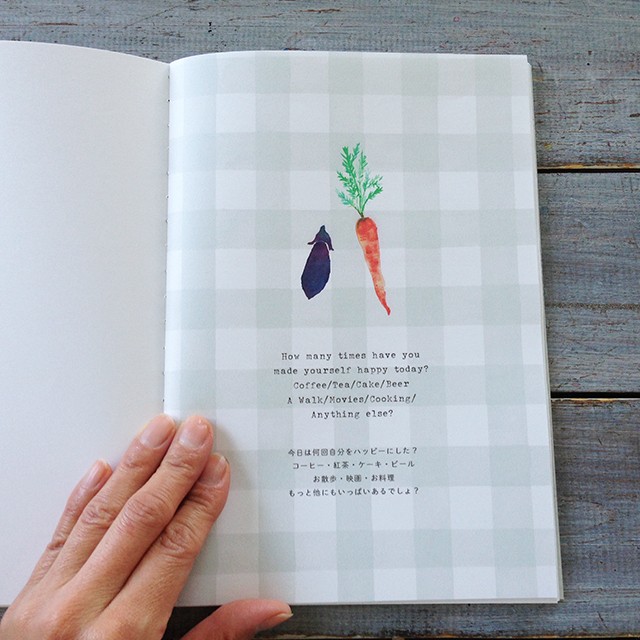 How many times have you
made yourself happy today?
Coffee/Tea/Cake/Beer
A Walk/Movies/Cooking/
Anything else?
今日は何回自分をハッピーにした？
コーヒー・紅茶・ケーキ・ビール
お散歩・映画・お料理
もっと他にもいっぱいあるでしょ？